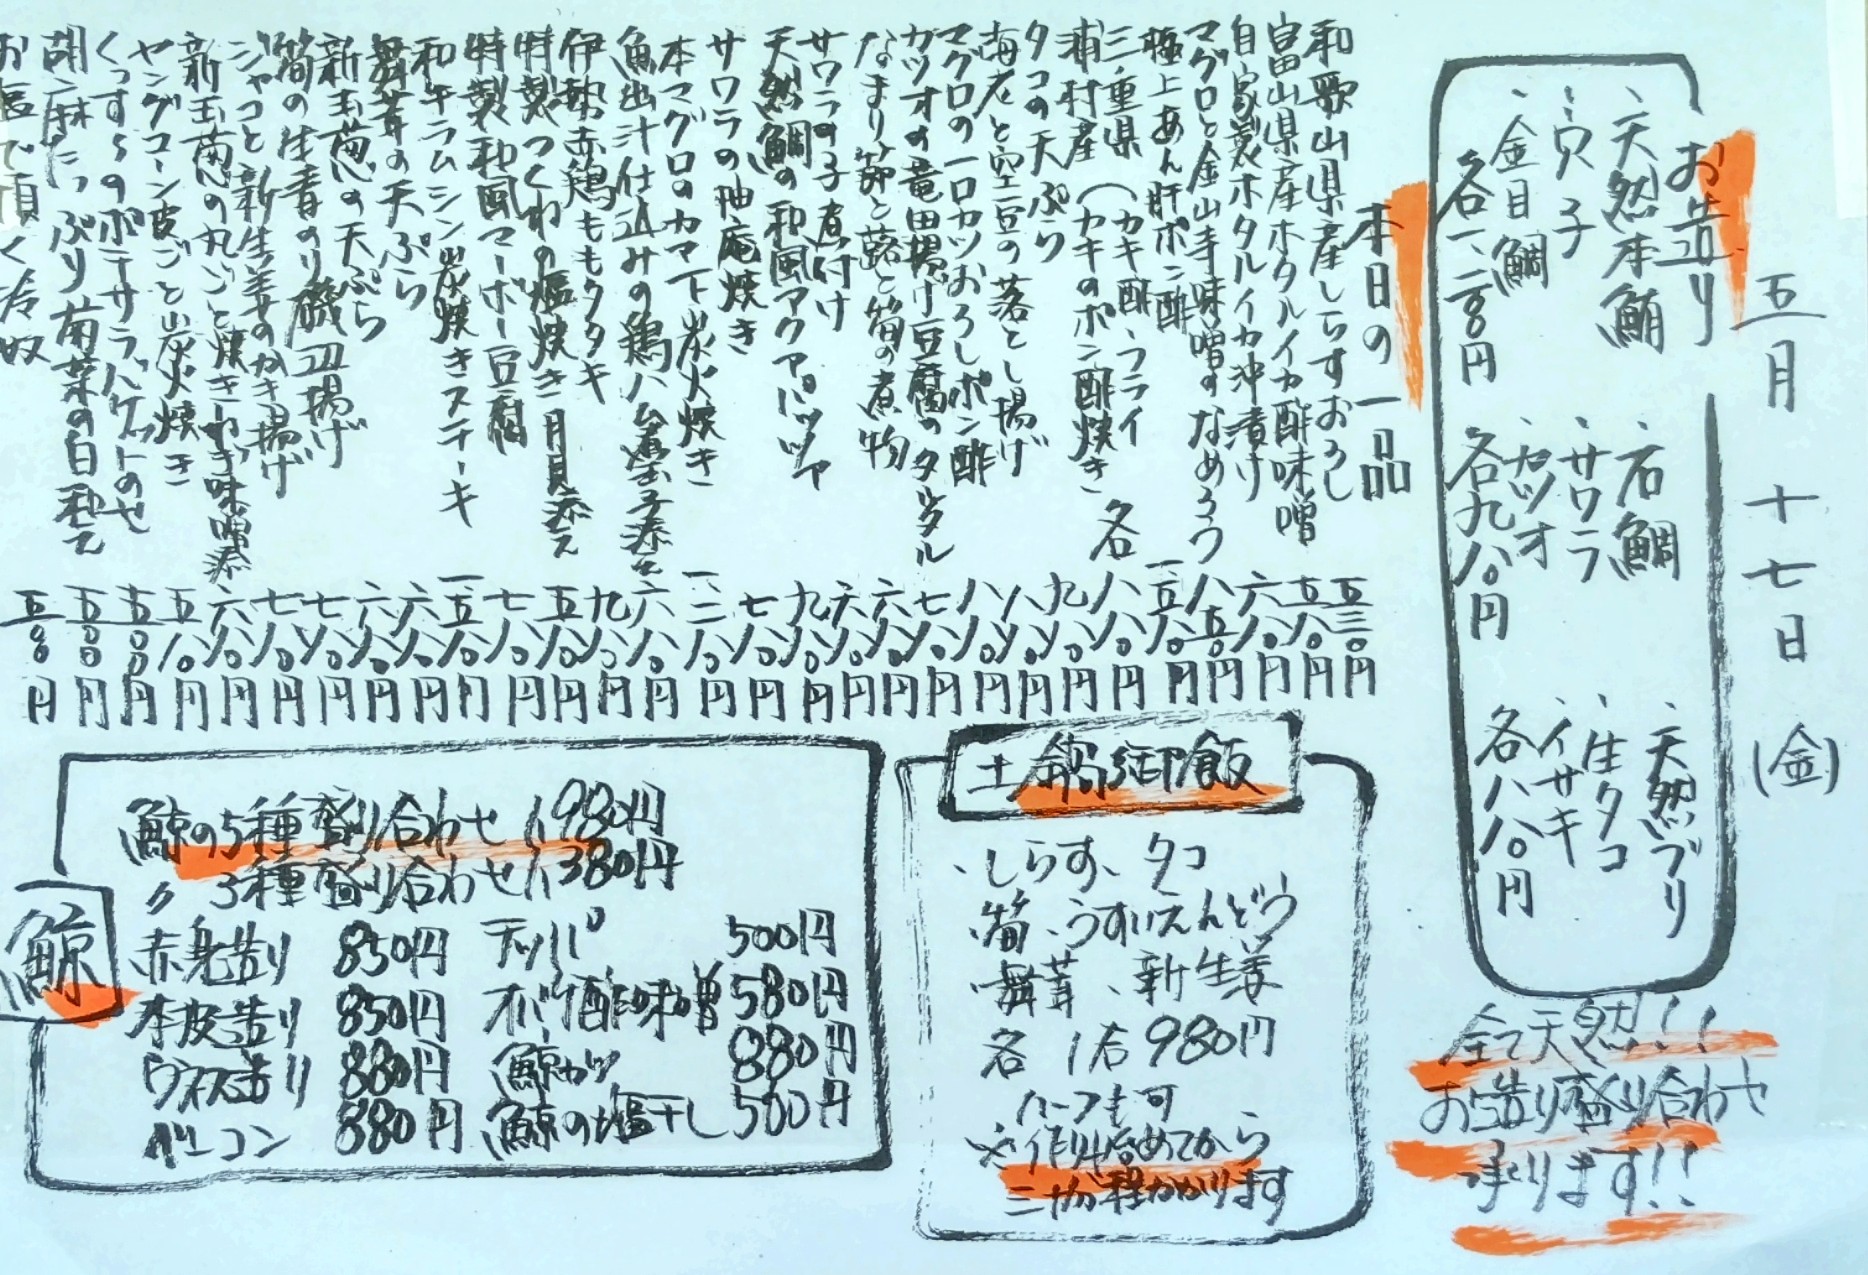 五月十七日(金)
お造り
・天然本鮪
・穴子
・金目鯛
各一、二〇〇円
・石鯛
・サワラ
・カツオ
各九八〇円
・天然ブリ
・生タコ
・イサキ
各八八〇円
全て天然!!
お造り盛り合わせ
承ります!!
本日の一品
和歌山県産しらすおろし 五三〇円
富山県産ホタルイカ酢味噌 五八〇円
自家製ホタルイカ沖漬け 六八〇円
マグロと金山寺味噌のなめろう 八五〇円
極上あん肝ポン酢 一、五八〇円
三重県(カキ酢、フライ
浦村産(カキのポン酢焼き 各 八八〇円
タコの天ぷら 九八〇円
海老と空豆の落とし揚げ 八八〇円
マグロの一口カツおろしポン酢 八八〇円
カツオの竜田揚げ豆腐のタルタル 七八〇円
なまり節と蕗と筍の煮物 六八〇円
サワラの子煮付け 六八〇円
天然鯛の和風アクアパッツァ 九八〇円
サワラの柚庵焼き 七八〇円
本マグロのカマ下炭火焼き 一、二八〇円
魚出汁仕込みの鶏ハム煮玉子添え 六八〇円
伊勢赤鶏ももタタキ 九八〇円
特製つくねの塩焼き月見添え 五八〇円
特製和風マーボー豆腐 七八〇円
和牛ラムシン炭焼きステーキ 一、五八〇円
舞茸の天ぷら 六八〇円
新玉葱の天ぷら 六八〇円
筍の生青のり磯辺揚げ 七八〇円
ジャコと新生姜のかき揚げ 七八〇円
新玉葱の丸ごと焼きねぎ味噌添 六八〇円
ヤングコーン皮ごと炭火焼き 五八〇円
くっす〜のポテサラバケットのせ 五〇〇円
胡麻たっぷり菊菜の白和え 五〇〇円
お塩で頂く冷奴 五〇〇円
土鍋御飯
・しらす、タコ
・筍、うすいえんどう
・舞茸、新生姜
各1合980円
ハーフも可
※作り始めてから
三十分程かかります
鯨
鯨の5種盛り合わせ 1,980円
〃 3種盛り合わせ 1,380円
赤身造り 850円 テッパ 500円
本皮造り 850円 オバケ酢味噌 580円
ウネス造り 880円 鯨カツ 880円
ベーコン 880円 鯨の塩干し 500円